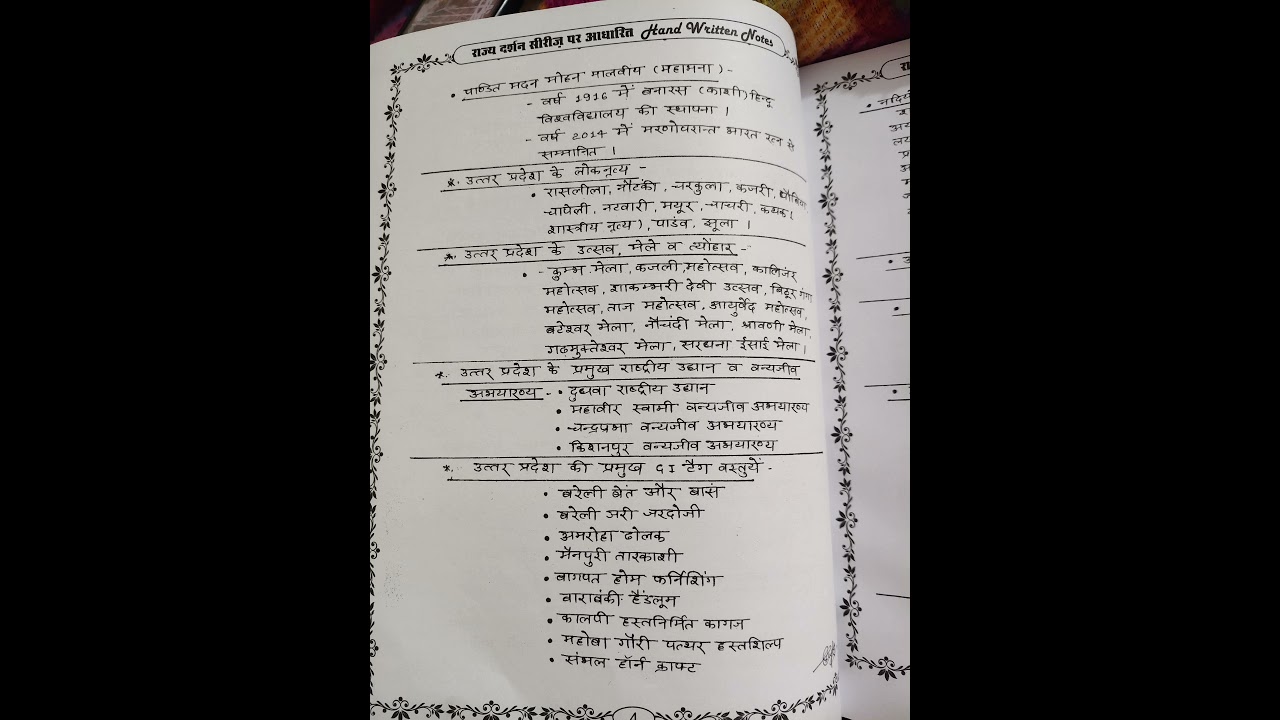 राज्य दर्शन सीरीज़ पर आधारित Hand Written Notes
• पाण्डित मदन मोहन मालवीय (महामना) -
- वर्ष 1916 में बनारस (काशी) हिन्दू
विश्वविद्यालय की स्थापना ।
- वर्ष 2014 में मरणोपरान्त भारत रत्न से
सम्मानित ।
*. उत्तर प्रदेश के लोकनृत्य -
• रासलीला, नौटंकी, चरकुला, कजरी,
चापेली, नटवारी, मयूर, चाचरी, कथक (
शास्त्रीय नृत्य), पाडंव, झूला ।
*. उत्तर प्रदेश के उत्सव, मेले व त्योंहार -
• - कुम्भ मेला, कजली महोत्सव, कालिंजर
महोत्सव, शाकम्भरी देवी उत्सव, बिठूर गंगा
महोत्सव, ताज महोत्सव, आयुर्वेद महोत्सव,
बटेश्वर मेला, नौचंदी मेला, श्रावणी मेला,
गढ़मुक्तेश्वर मेला, सरधना ईसाई मेला ।
*. उत्तर प्रदेश के प्रमुख राष्ट्रीय उद्यान व वन्यजीव
अभयारण्य - • दुधवा राष्ट्रीय उद्यान
• महावीर स्वामी वन्यजीव अभयारण्य
• चन्द्रप्रभा वन्यजीव अभयारण्य
• किशनपुर वन्यजीव अभयारण्य
*. उत्तर प्रदेश की प्रमुख GI टैग वस्तुयें -
• बरेली बेंत और बासं
• बरेली जरी जरदोजी
• अमरोहा ढोलक
• मैनपुरी तारकाशी
• बागपत होम फर्निशिंग
• बाराबंकी हैंडलूम
• कालपी हस्तनिर्मित कागज
• महोबा गौरी पत्थर हस्तशिल्प
• संभल हॉर्न क्राफ्ट